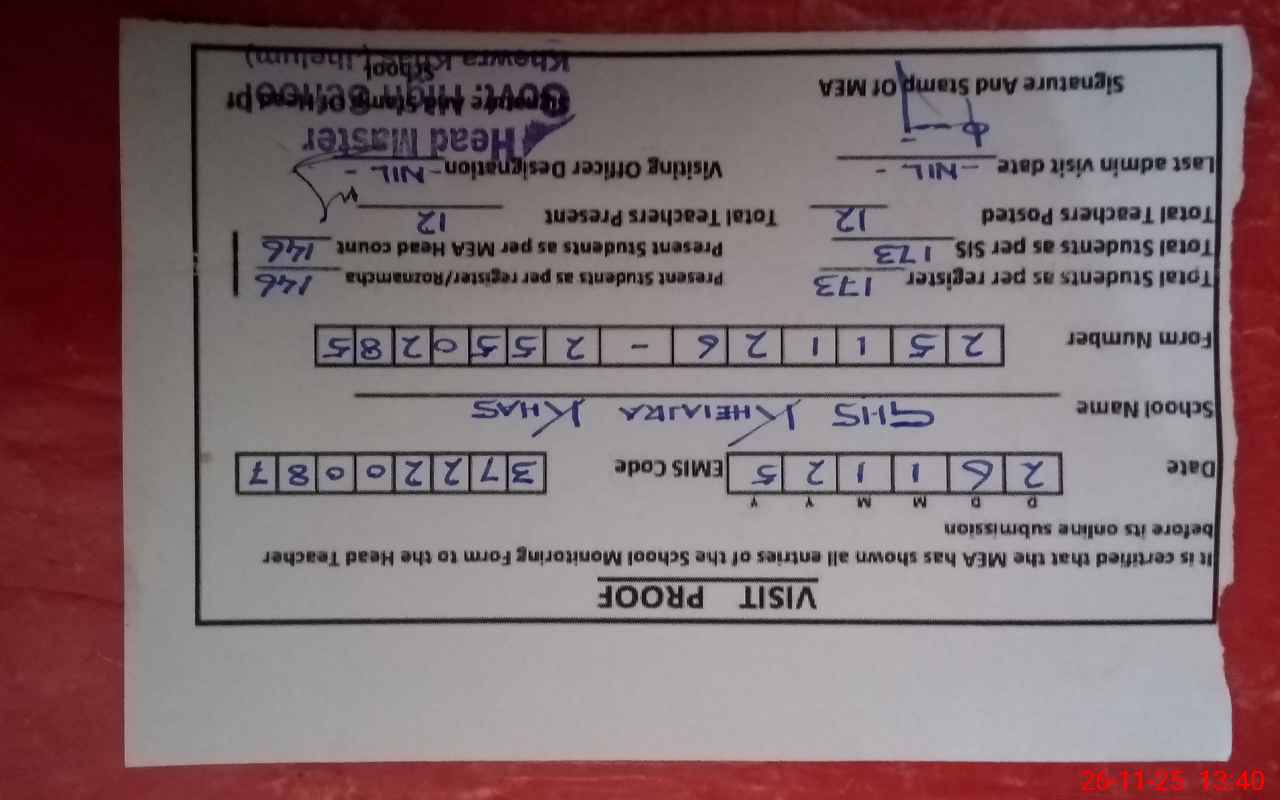 VISIT PROOF
It is certified that the MEA has shown all entries of the School Monitoring Form to the Head Teacher
before its online submission
D D M M Y Y
Date 2 6 1 1 2 5 EMIS Code 3 7 2 2 0 0 8 7
School Name GHS KHEWRA KHAS
Form Number 2 5 1 1 2 6 - 2 5 5 0 2 8 5
Total Students as per register 173 Present Students as per register/Roznamcha 146
Total Students as per SIS 173 Present Students as per MEA Head count 146
Total Teachers Posted 12 Total Teachers Present 12
Last admin visit date - NIL - Visiting Officer Designation - NIL -
Head Master
Signature And Stamp Of MEA Signature And Stamp Of Head Of
School
Govt. High School
Khewra Khas (Jhelum)
26-11-25 13:40